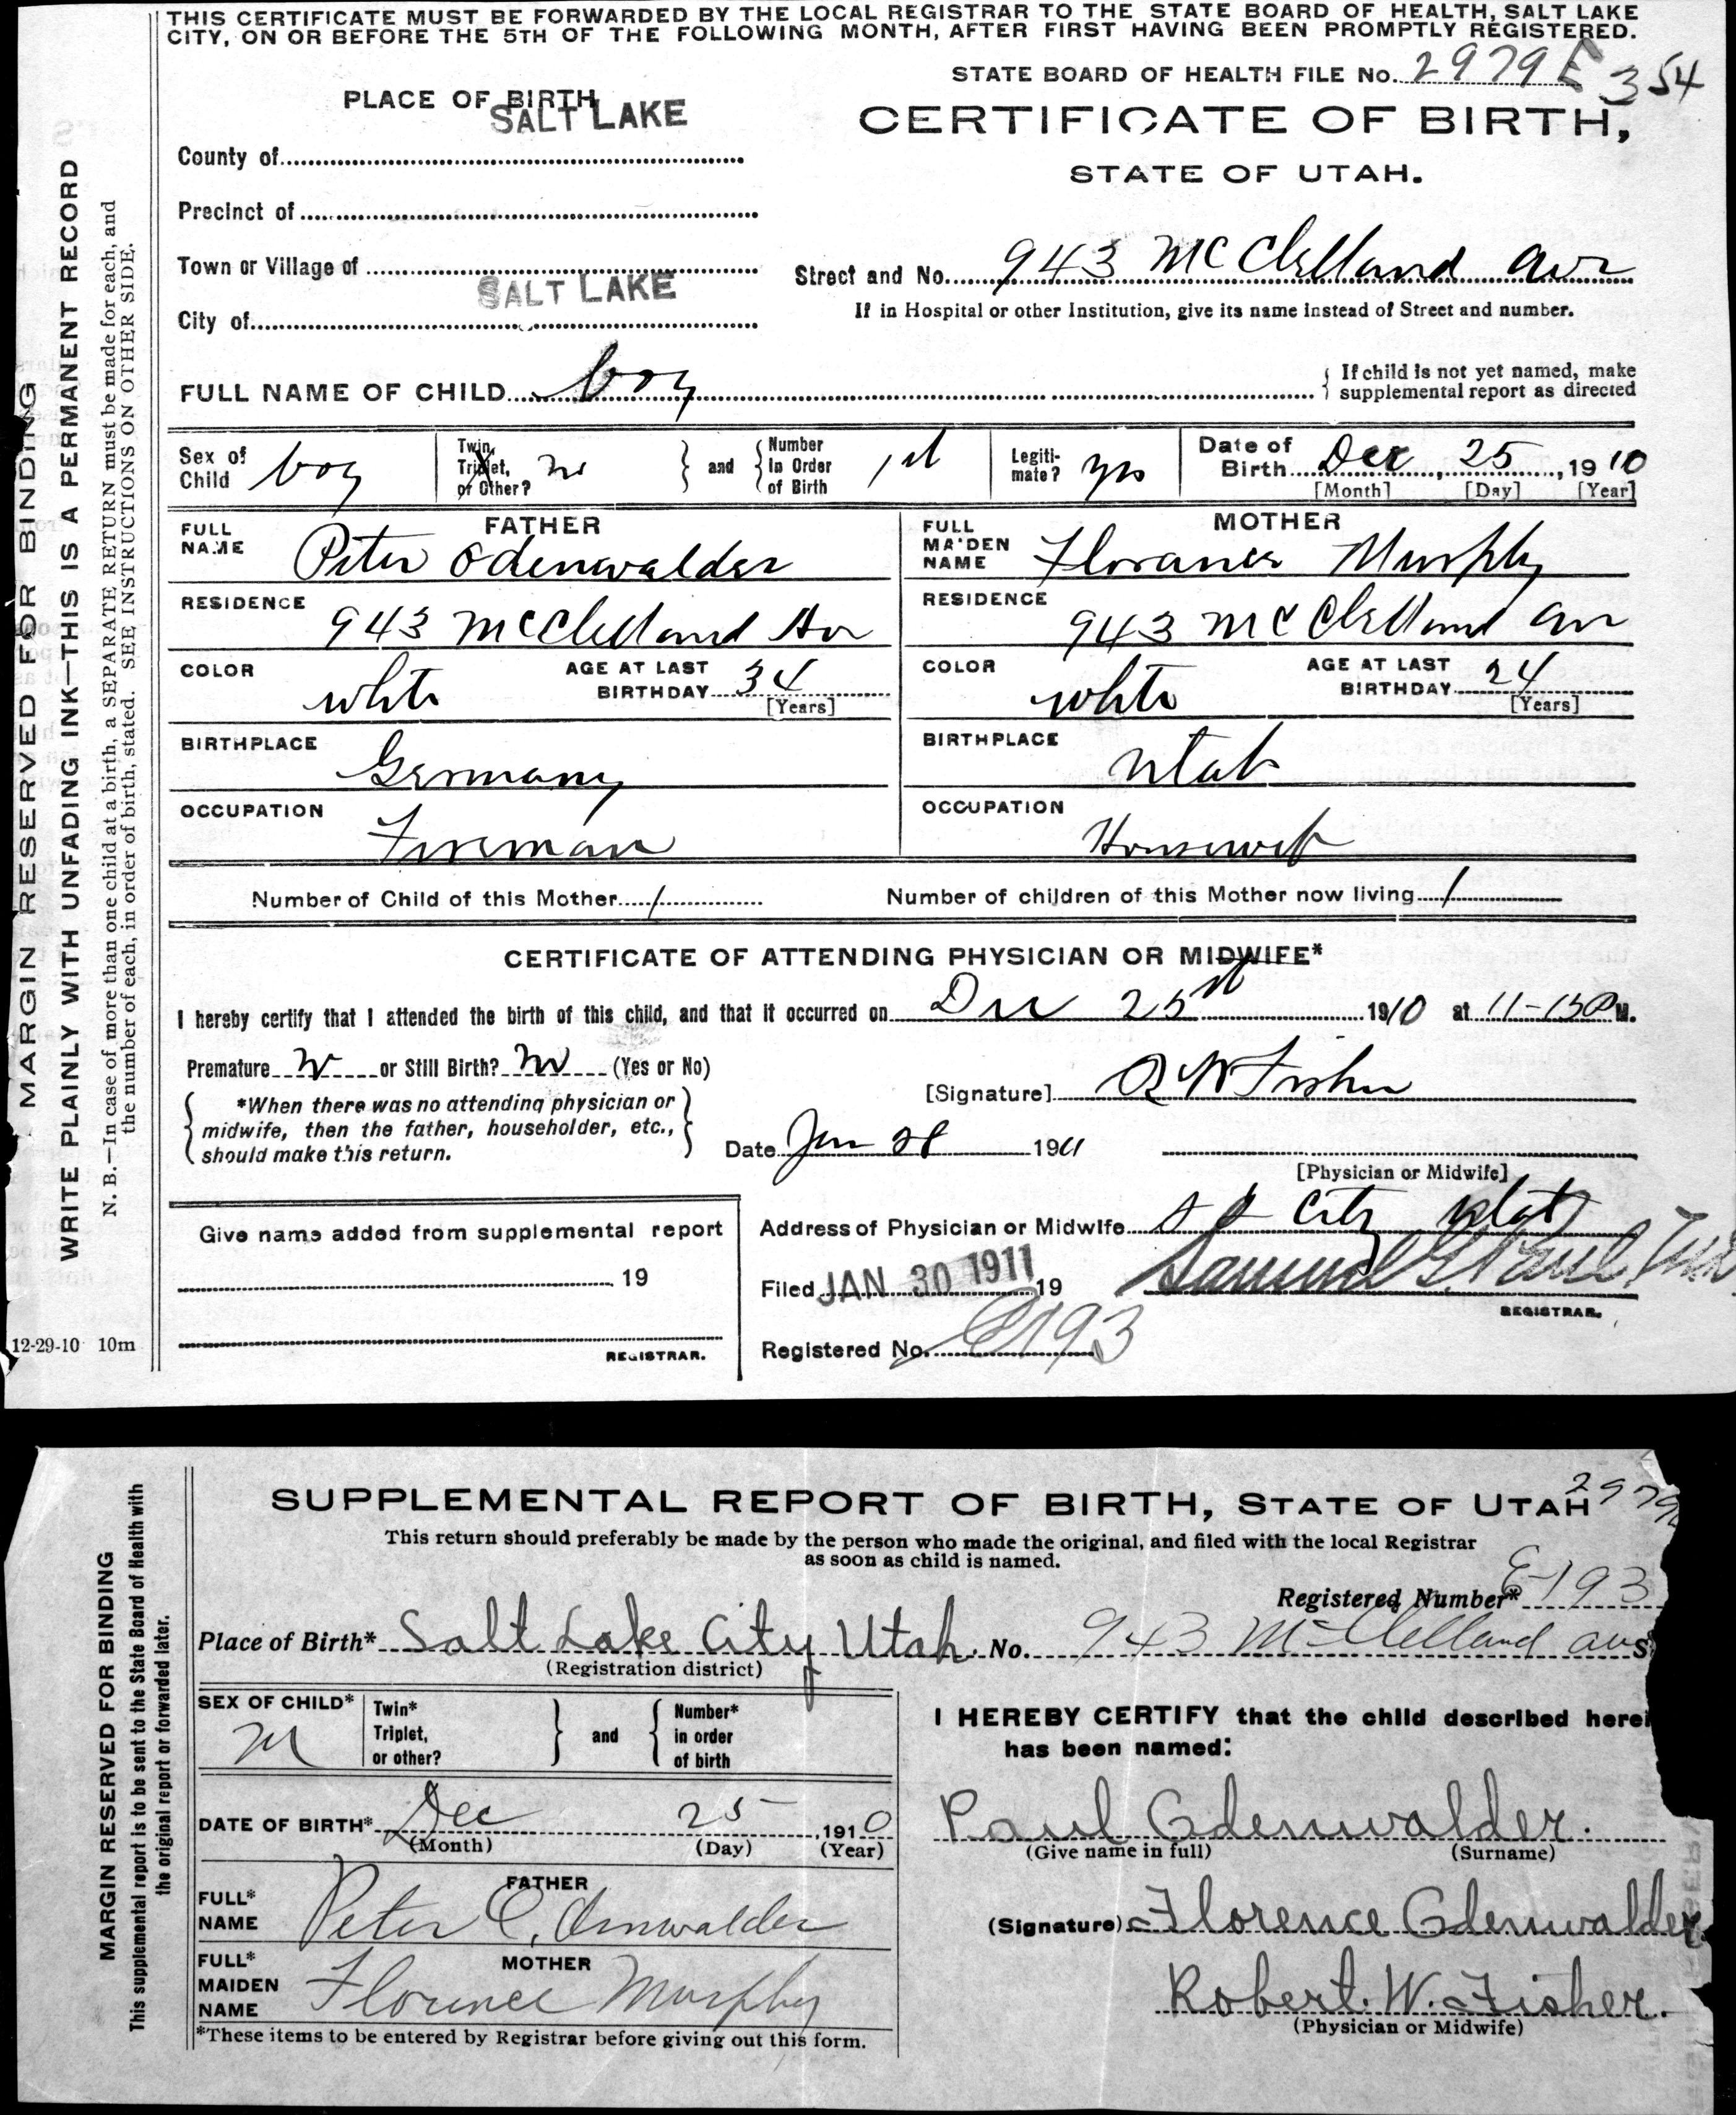 THIS CERTIFICATE MUST BE FORWARDED BY THE LOCAL REGISTRAR TO THE STATE BOARD OF HEALTH, SALT LAKE
CITY, ON OR BEFORE THE 5TH OF THE FOLLOWING MONTH, AFTER FIRST HAVING BEEN PROMPTLY REGISTERED.
STATE BOARD OF HEALTH FILE No. 2979 E 354
PLACE OF BIRTH
SALT LAKE
CERTIFICATE OF BIRTH,
County of
STATE OF UTAH.
Precinct of
Town or Village of
Street and No. 943 McClelland Ave
SALT LAKE
City of
If in Hospital or other Institution, give its name instead of Street and number.
FULL NAME OF CHILD boy
If child is not yet named, make
supplemental report as directed
Sex of Child boy
Twin, Triplet, or Other? no
and Number in Order of Birth 1st
Legiti-mate? yes
Date of Birth Dec, 25, 1910
[Month] [Day] [Year]
FATHER
FULL NAME Peter Odenwalder
MOTHER
FULL MAIDEN NAME Florance Murphy
RESIDENCE 943 McClelland Av
RESIDENCE 943 McClelland Av
COLOR white AGE AT LAST BIRTHDAY 34
[Years]
COLOR white AGE AT LAST BIRTHDAY 24
[Years]
BIRTHPLACE Germany
BIRTHPLACE Utah
OCCUPATION Fireman
OCCUPATION Housewife
Number of Child of this Mother 1
Number of children of this Mother now living 1
CERTIFICATE OF ATTENDING PHYSICIAN OR MIDWIFE*
I hereby certify that I attended the birth of this child, and that it occurred on Dec 25st 1910 at 11-15 P M.
Premature no or Still Birth? no (Yes or No)
[Signature] R W Fisher
*When there was no attending physician or
midwife, then the father, householder, etc.,
should make this return.
Date Jan 28 1911
[Physician or Midwife]
Give name added from supplemental report
19
REGISTRAR.
Address of Physician or Midwife S L City Utah
Filed JAN 30 1911 19
Samuel G. Paul
REGISTRAR.
Registered No. E193
MARGIN RESERVED FOR BINDING
WRITE PLAINLY WITH UNFADING INK—THIS IS A PERMANENT RECORD
N. B.—In case of more than one child at a birth, a SEPARATE RETURN must be made for each, and
the number of each, in order of birth, stated. SEE INSTRUCTIONS ON OTHER SIDE.
12-29-10 10m
SUPPLEMENTAL REPORT OF BIRTH, STATE OF UTAH
2979
This return should preferably be made by the person who made the original, and filed with the local Registrar
as soon as child is named.
Registered Number* E-193
Place of Birth* Salt Lake City Utah. No. 943 McClelland ave S
(Registration district)
SEX OF CHILD* M
Twin* Triplet, or other?
and Number* in order of birth
I HEREBY CERTIFY that the child described herei
has been named:
DATE OF BIRTH* Dec 25 1910
(Month) (Day) (Year)
Paul Odenwalder.
(Give name in full) (Surname)
FATHER
FULL* NAME Peter C. Odenwalder
(Signature) Florence Odenwalder
MOTHER
FULL* MAIDEN NAME Florence Murphy
Robert. W. Fisher.
(Physician or Midwife)
*These items to be entered by Registrar before giving out this form.
MARGIN RESERVED FOR BINDING
This supplemental report is to be sent to the State Board of Health with
the original report or forwarded later.